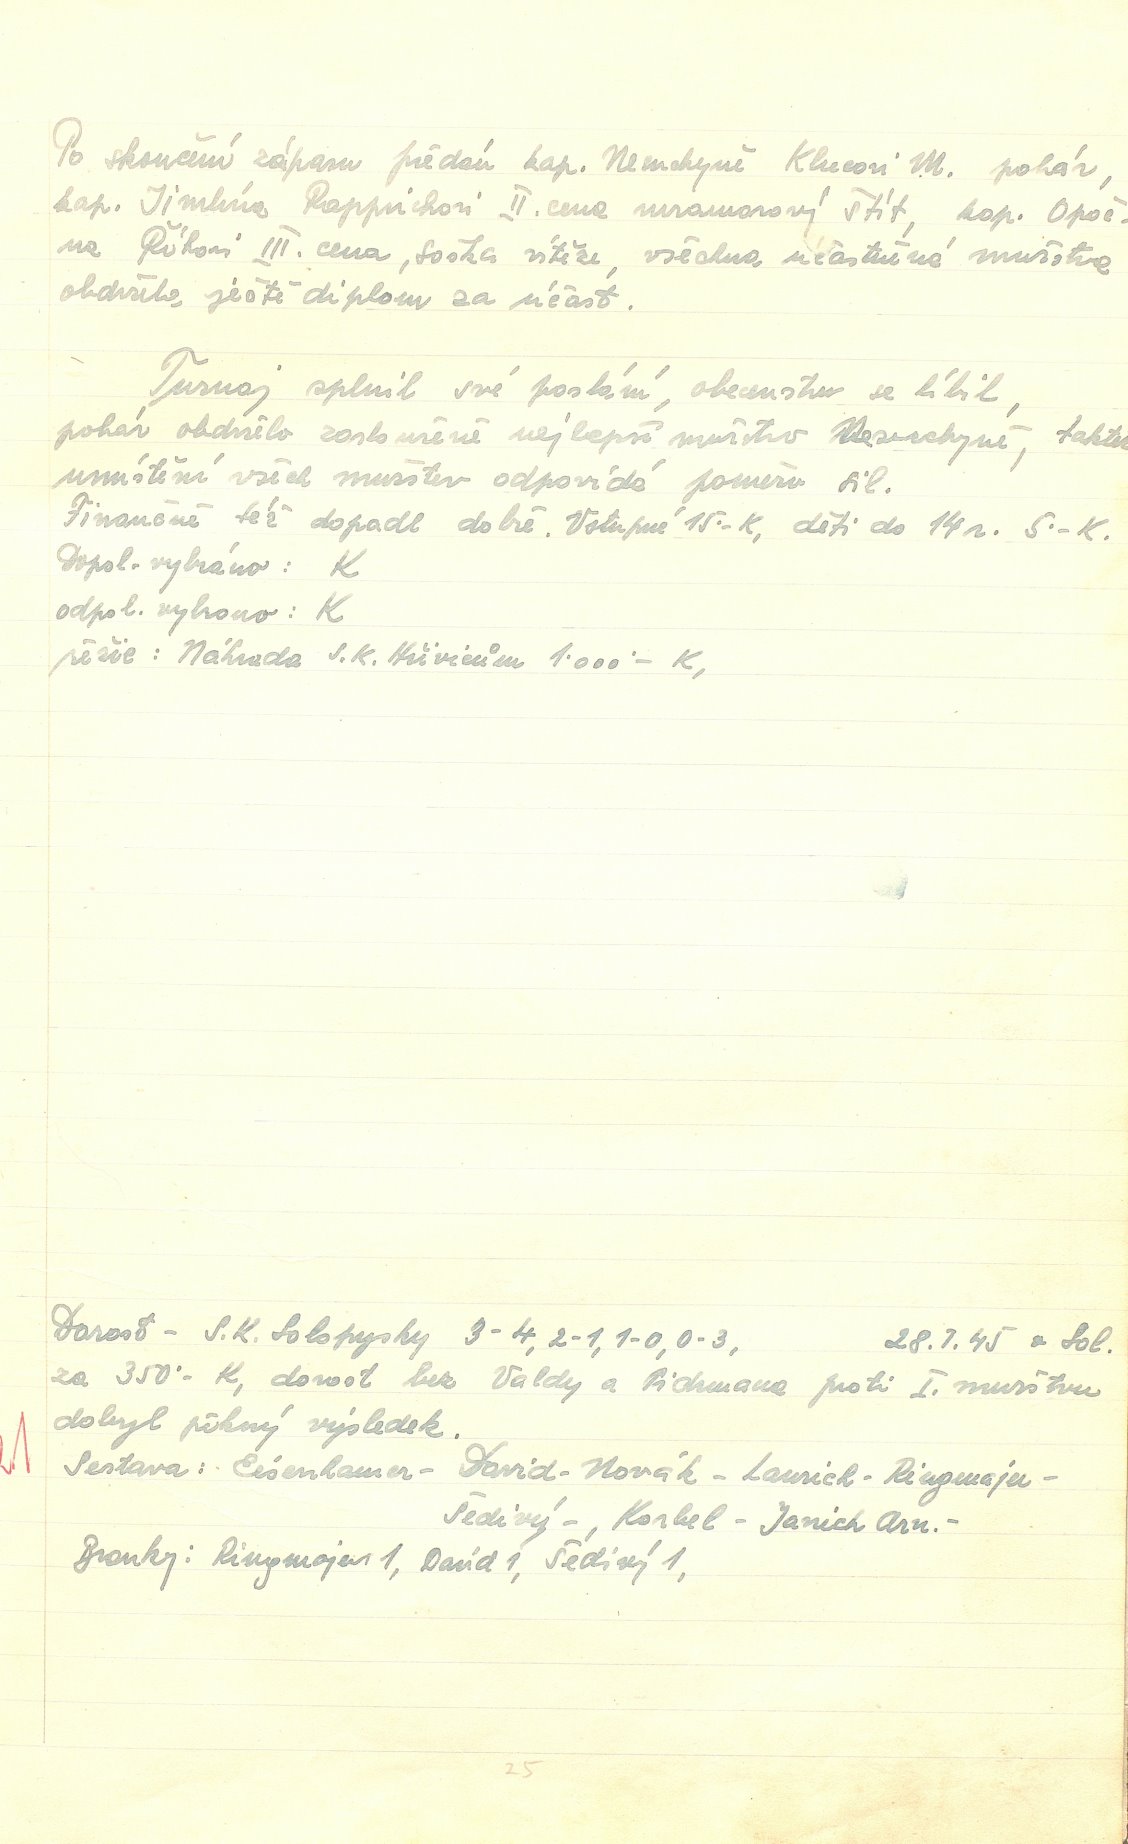 Po skončení zápasu předán kap. Nemchyně Klucovi M. pohár,
kap. Jimlína Rapprichovi II. cena mramorový štít, kap. Opoč-
na Říhovi III. cena, soška vítěze, všechna účastněná mužstva
obdržela ještě diplom za účast.
Turnaj splnil své poslání, obecenstvu se líbil,
pohár obdrželo zaslouženě nejlepší mužstvo Nemchyně,
umístění všech mužstev odpovídá poměru sil.
Finančně též dopadl dobře. Vstupné 15·- K, děti do 14 r. 5·- K.
Dopol. vybráno : K
odpol. vybrano : K
režie : Náhrada S.K. Hřivicům 1·000·- K,
Dorost - S.K. Solopysky 3-4, 2-1, 1-0, 0-3, 28.7.45 v Sol.
za 350·- K, dorost bez Valdy a Fidrmana proti I. mužstvu
dobyl pěkný výsledek.
21
Sestava : Eisenhamer - David - Novák - Laurich - Ringmajer -
Šedivý - , Korbel - Janich Arn. -
Branky : Ringmajer 1, David 1, Šedivý 1,
25